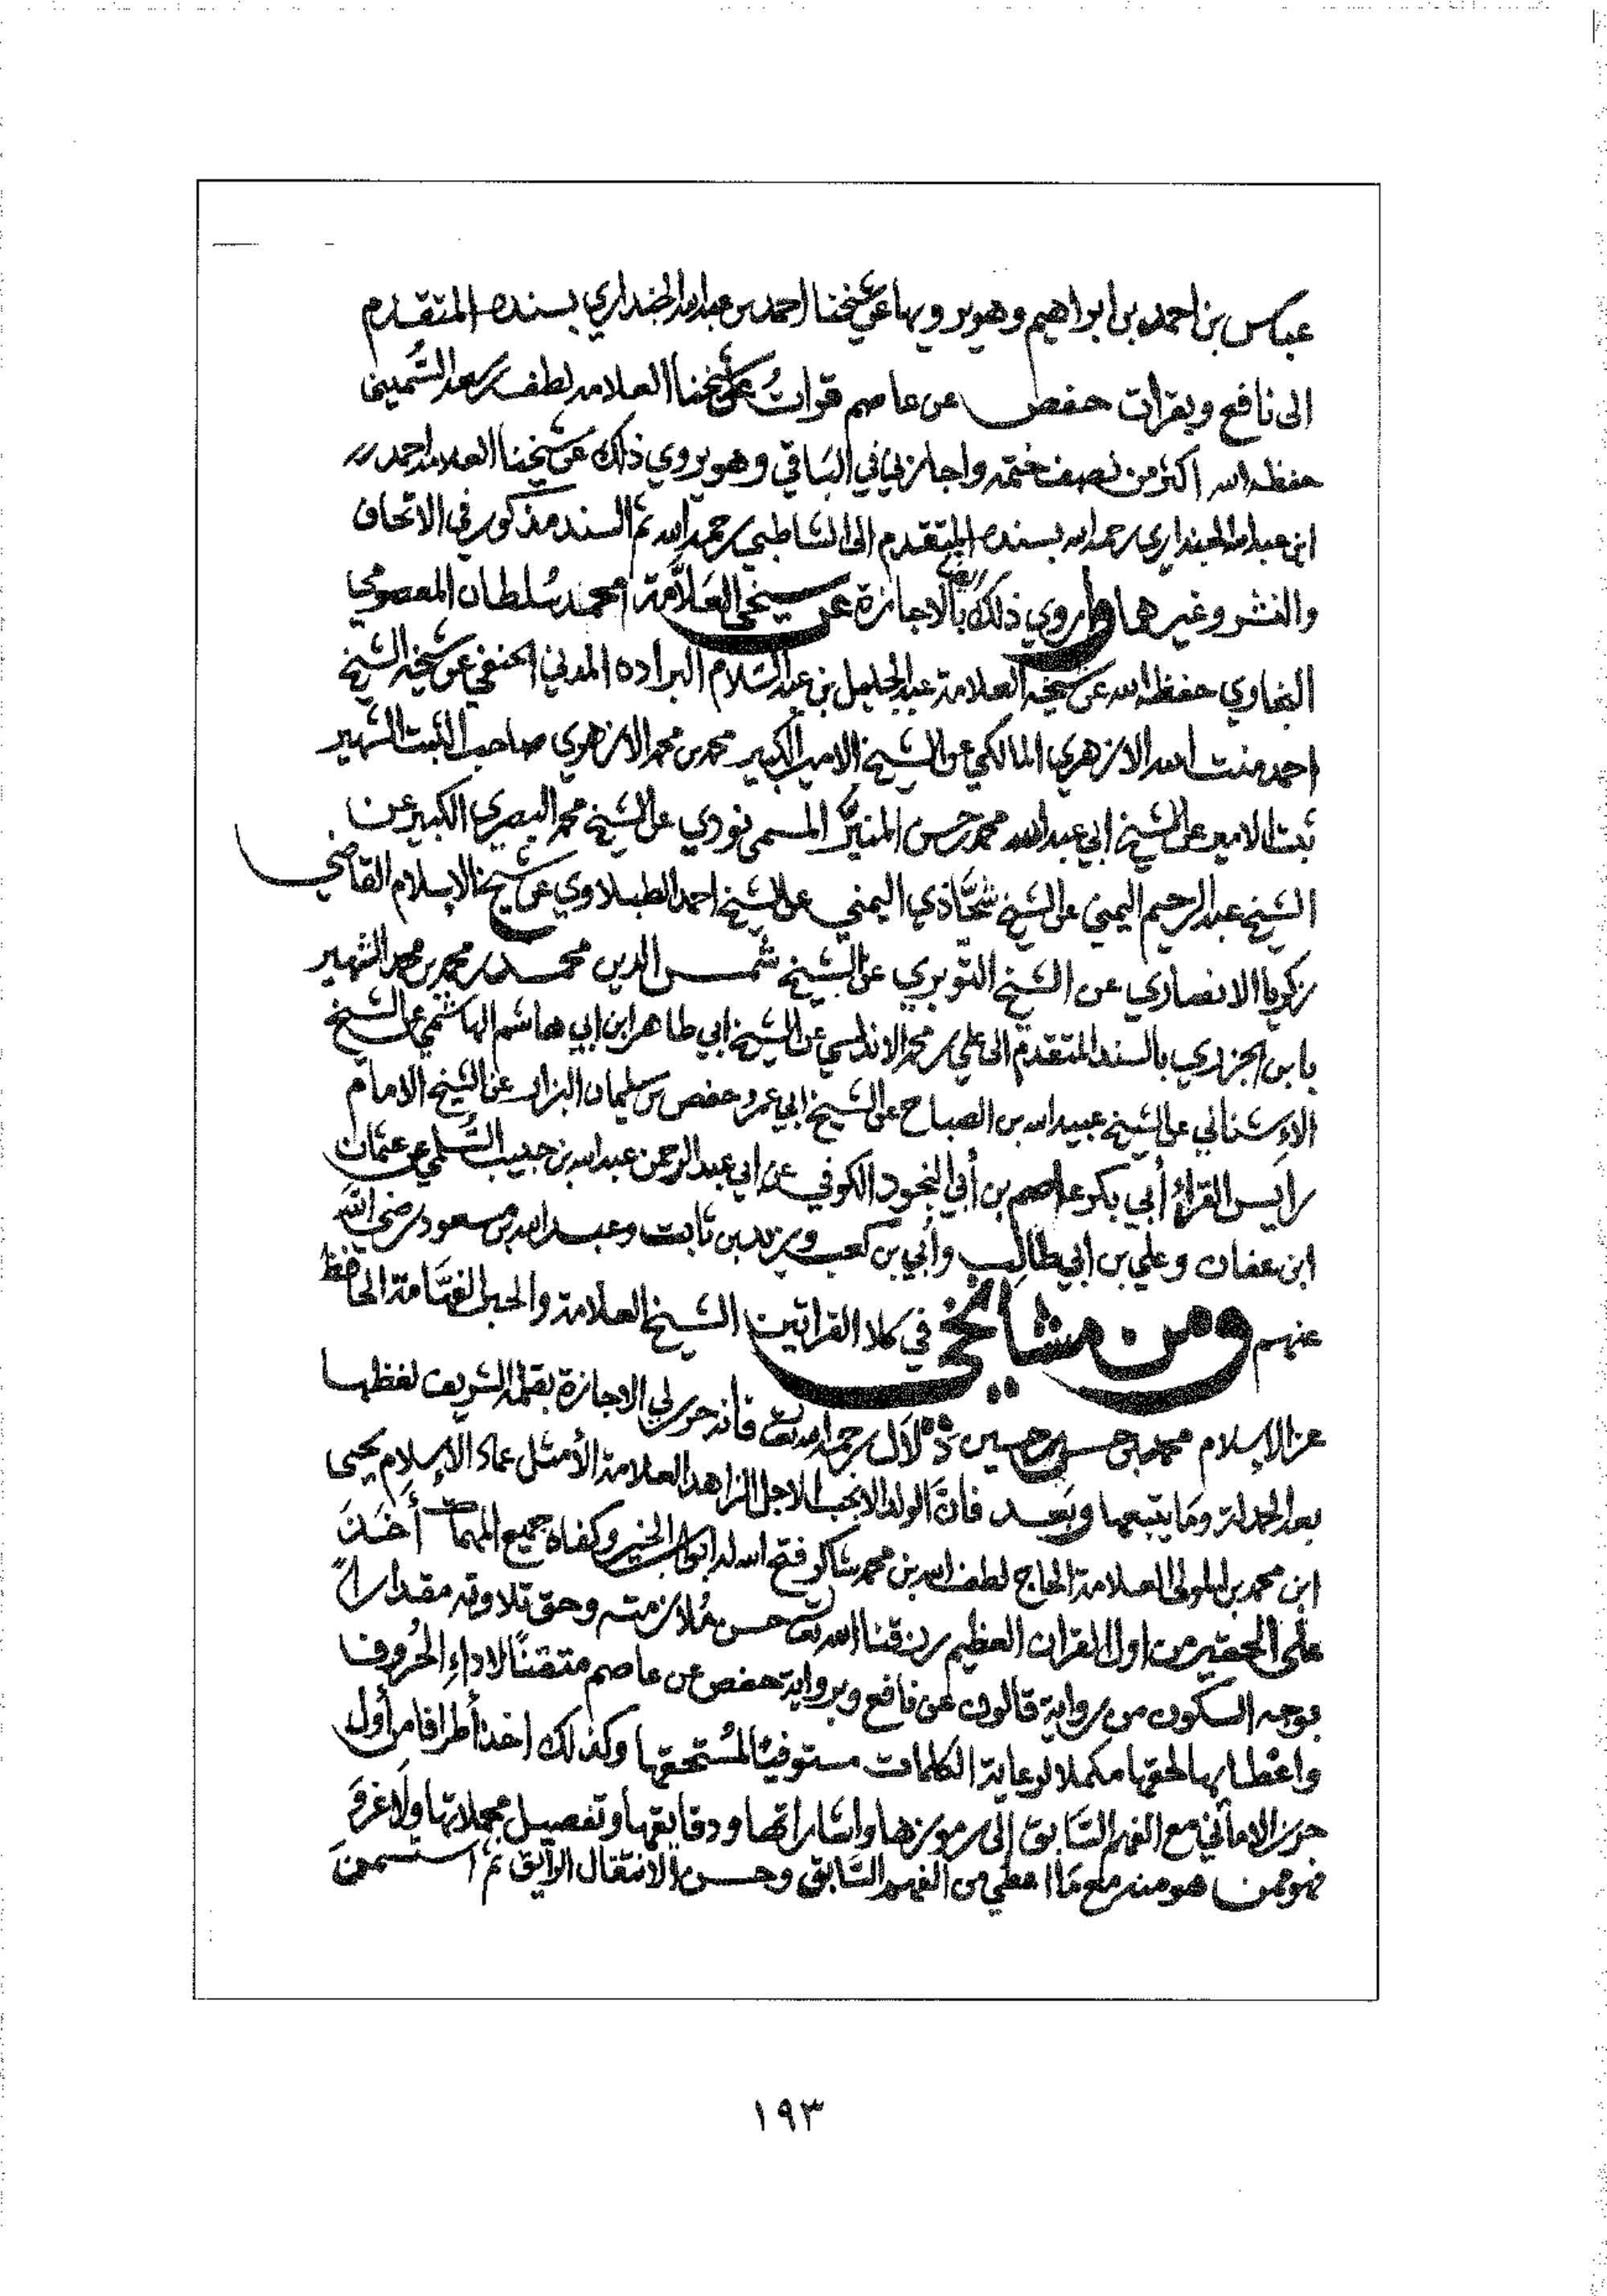 عباس بن احمد بن ابراهيم وهو يرويها عن شيخنا احمد بن عبدالله الجنداري بسنده المتقدم
الى نافع وبقرات حفص عن عاصم قرات على شيخنا العلامه لطف بن سعد السُّميني
حفظه الله اكثر من نصف ختمه واجاز لي في البَاقي وهو يروي ذلك عن شيخنا العلامه احمد
ابن عبدالله الجنداري رحمه الله بسنده المتقدم الى الشاطبي رحمه الله ثم السند مذكور في الاتحاف
والنشر وغيرها واروي ذلك بالاجازة عن شيخي العَلاَّمة محمد سُلطان المعصومي
البخاوي حفظه الله عن شيخه العلامة عبد الجليل بن عبد السّلام البراده المدني الحنفي عن شيخه الشيخ
احمد منت الله الازهري المالكي عن الشيخ الامير الكبير محمد بن محمد الازهري صاحب الثبت الشهير
بثبت الامير عن الشيخ ابي عبدالله محمد حسن المنيّر المسمى نودي عن الشيخ محمد البصري الكبير عن
الشيخ عبد الرحيم اليمني عن الشيخ شحَّاذي اليمني عن الشيخ احمد الطبلاوي عن شيخ الاسلام القاضي
زكريا الانصاري عن الشيخ النّويري عن الشيخ شمس الدين محمد بن محمد بن محمد الشهير
بابن الجزري بالسند المتقدم الى علي بن محمد الاندلسي عن الشيخ ابي طاهر ابن ابي هاشم الهاشمي عن الشيخ
الاوشناني عن الشيخ عبيد الله بن الصباح عن الشيخ ابي عمرو حفص بن سليمان البزاز عن الشيخ الامام
رايس القراءُ أبي بكر عاصم بن أبي النجود الكوفي عن ابي عبد الرحمن عبدالله بن حبيب السُّلمي عن عثمان
ابن عفان وعلي بن ابي طالب وأبي بن كعب وزيد بن ثابت وعبد الله بن مسعود رضي الله
عنهم ومن مشايخي في كلا القراتين الشيخ العلامة والحبر الفهَّامة الحافظ
عز الاسلام محمد بن حسين دلال رحمه الله تعالى فانه حرر لي الاجازة بقلمه الشريف لفظها
بعد الحمدلة ومَا يتبعها وبَعد فانّ الولد الانجب الاجل الزاهد العلامة الأمثل عماد الإسلام يحيى
ابن محمد بن المولى العلامة الحاج لطف الله بن محمد شاكر فتح الله له ابواب الخير وكفاه جميع المهمات أخَذَ
على الحقير من اول القران العظيم رزقنا الله تعالى حسن مُلازمته وحق تلاوته مقداراً
بوجه السكون من رواية قالون عن نافع وبرواية حفص عن عاصم متقنًا لاداءِ الحُروف
واعْطابها لحقها مكملا لرعاية الكلمات مستوفيًا لمُستحقها وكذلك اخذ أطرافا من أول
حرز الاماني مع الفهم السَّابق إلى رموزها واشاراتها ودقايقها وتفصيل مجملاتها ولا غروَ
فهو ممن هو منه مع مَا اعطي من الفهم السَّابق وحسن الانتقال الرايق ثم استسمنَ
١٩٣